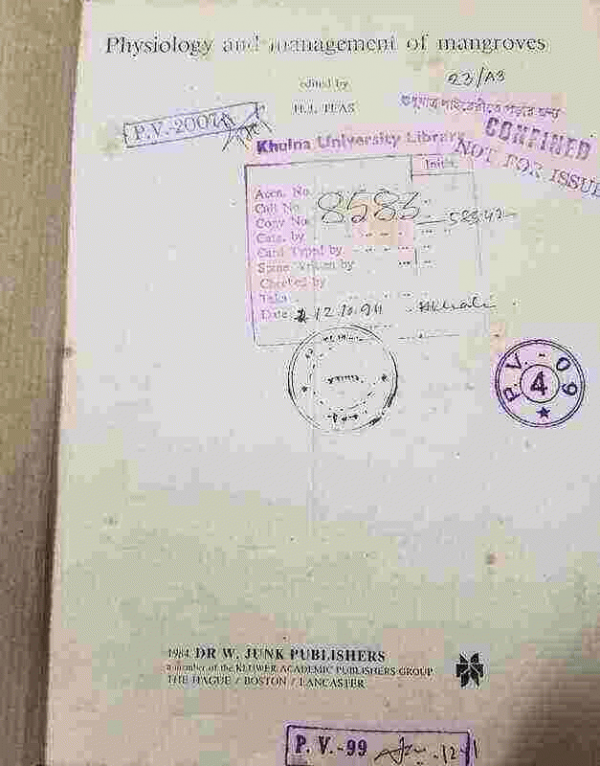 Physiology and management of mangroves
edited by
H.J. TEAS
23/A3
P.V.-2007
শুধুমাত্র লাইব্রেরীতে পড়ার জন্য
CONFINED
NOT FOR ISSUE
Khulna University Library
Initls.
Accn. No. 8583
Call No.
Copy No.
Cata. by
Card Typed by
Spine written by
Checked by
Taka
Date 12.10.94
P.V.-09
4
1984 DR W. JUNK PUBLISHERS
a member of the KLUWER ACADEMIC PUBLISHERS GROUP
THE HAGUE / BOSTON / LANCASTER
P. V.-99